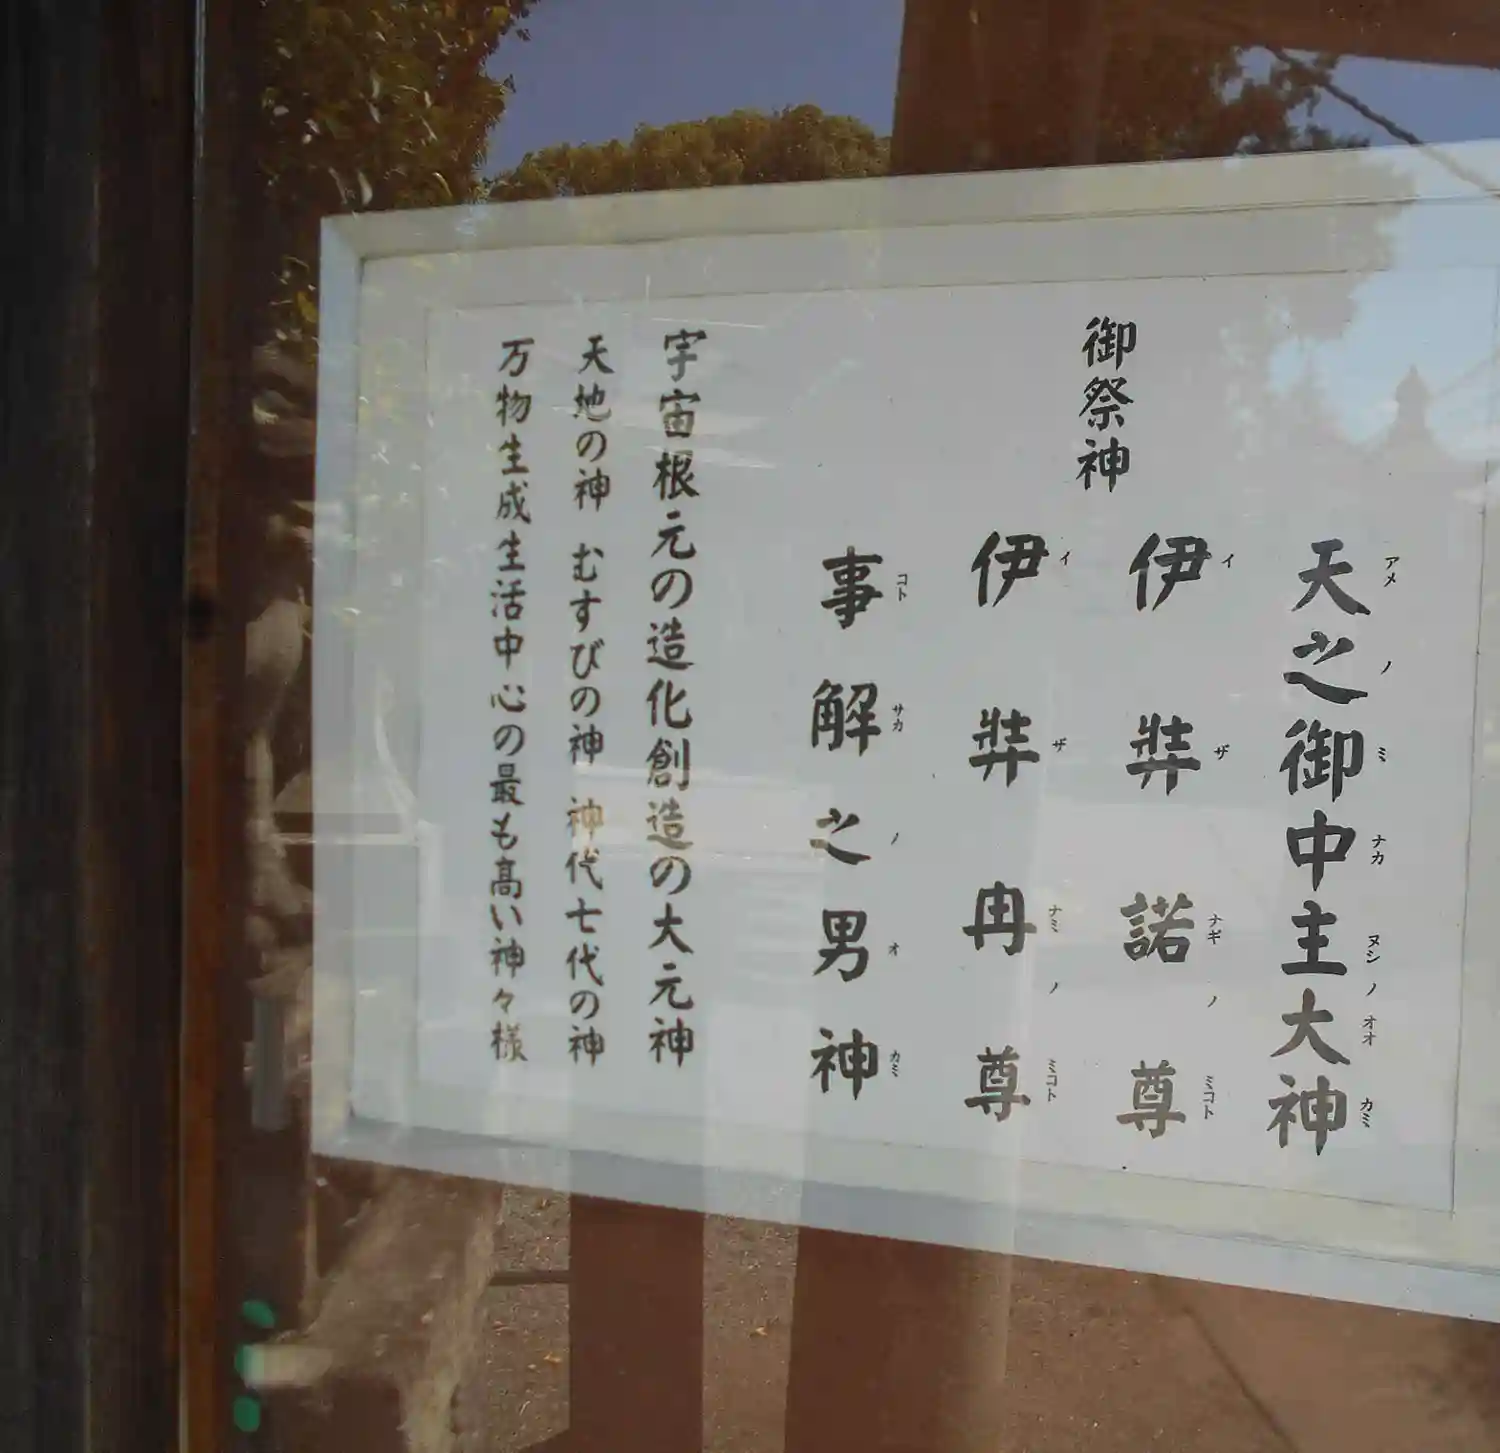 御祭神
天之御中主大神
アメノミナカヌシノオオカミ
伊弉諾尊
イザナギノミコト
伊弉冉尊
イザナミノミコト
事解之男神
コトサカノオカミ
宇宙根元の造化創造の大元神
天地の神 むすびの神 神代七代の神
万物生成生活中心の最も高い神々様